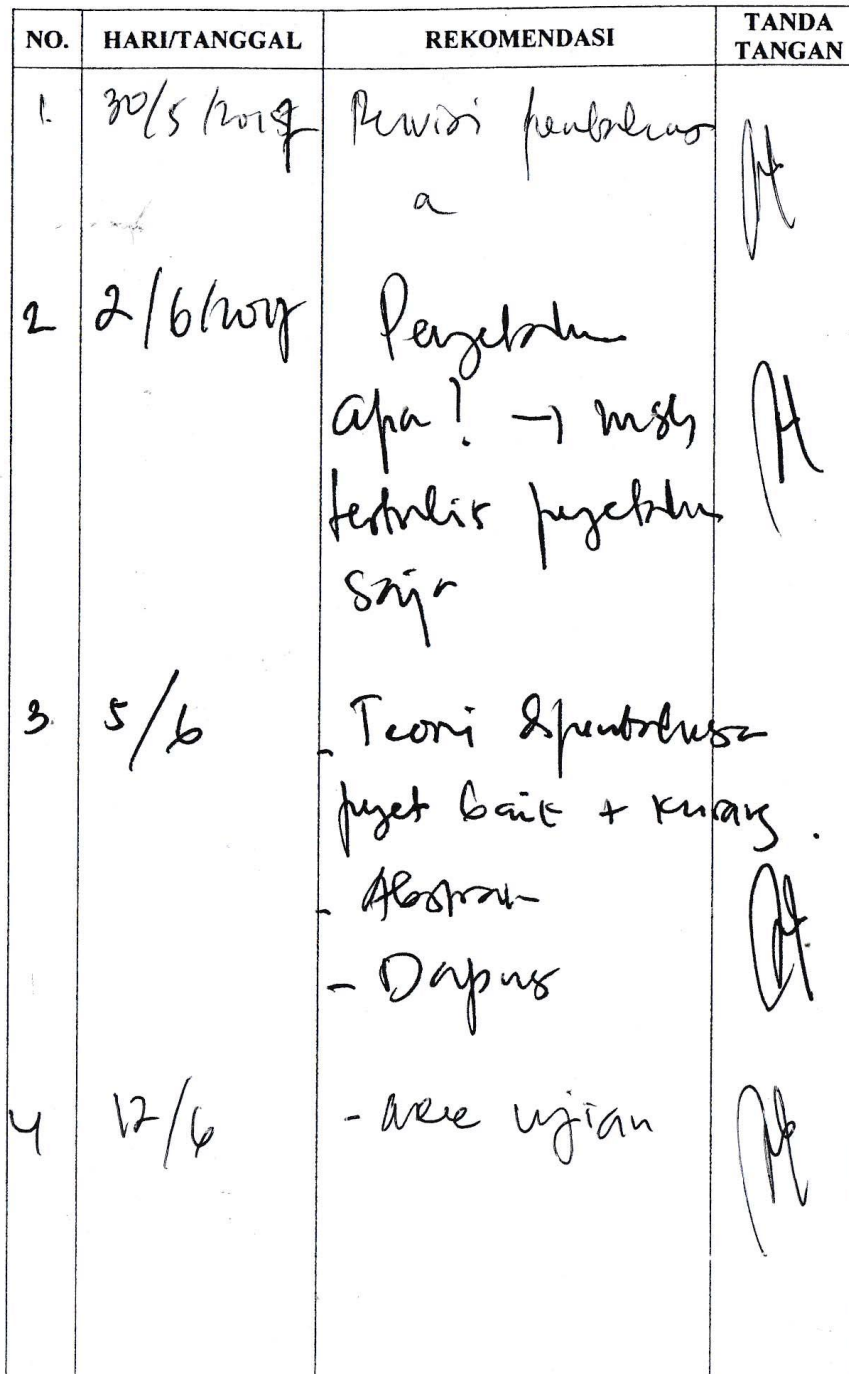 NO. HARI/TANGGAL REKOMENDASI TANDA TANGAN
1. 30/5 Revisi pembahasan
2 2/6/ Pengetahuan
apa! → msh
tertulis pengetahuan
saja
3. 5/6 - Teori pembahasan
penget baik + kurang.
- Abstrak
- Dapus
4 12/6 - acc ujian